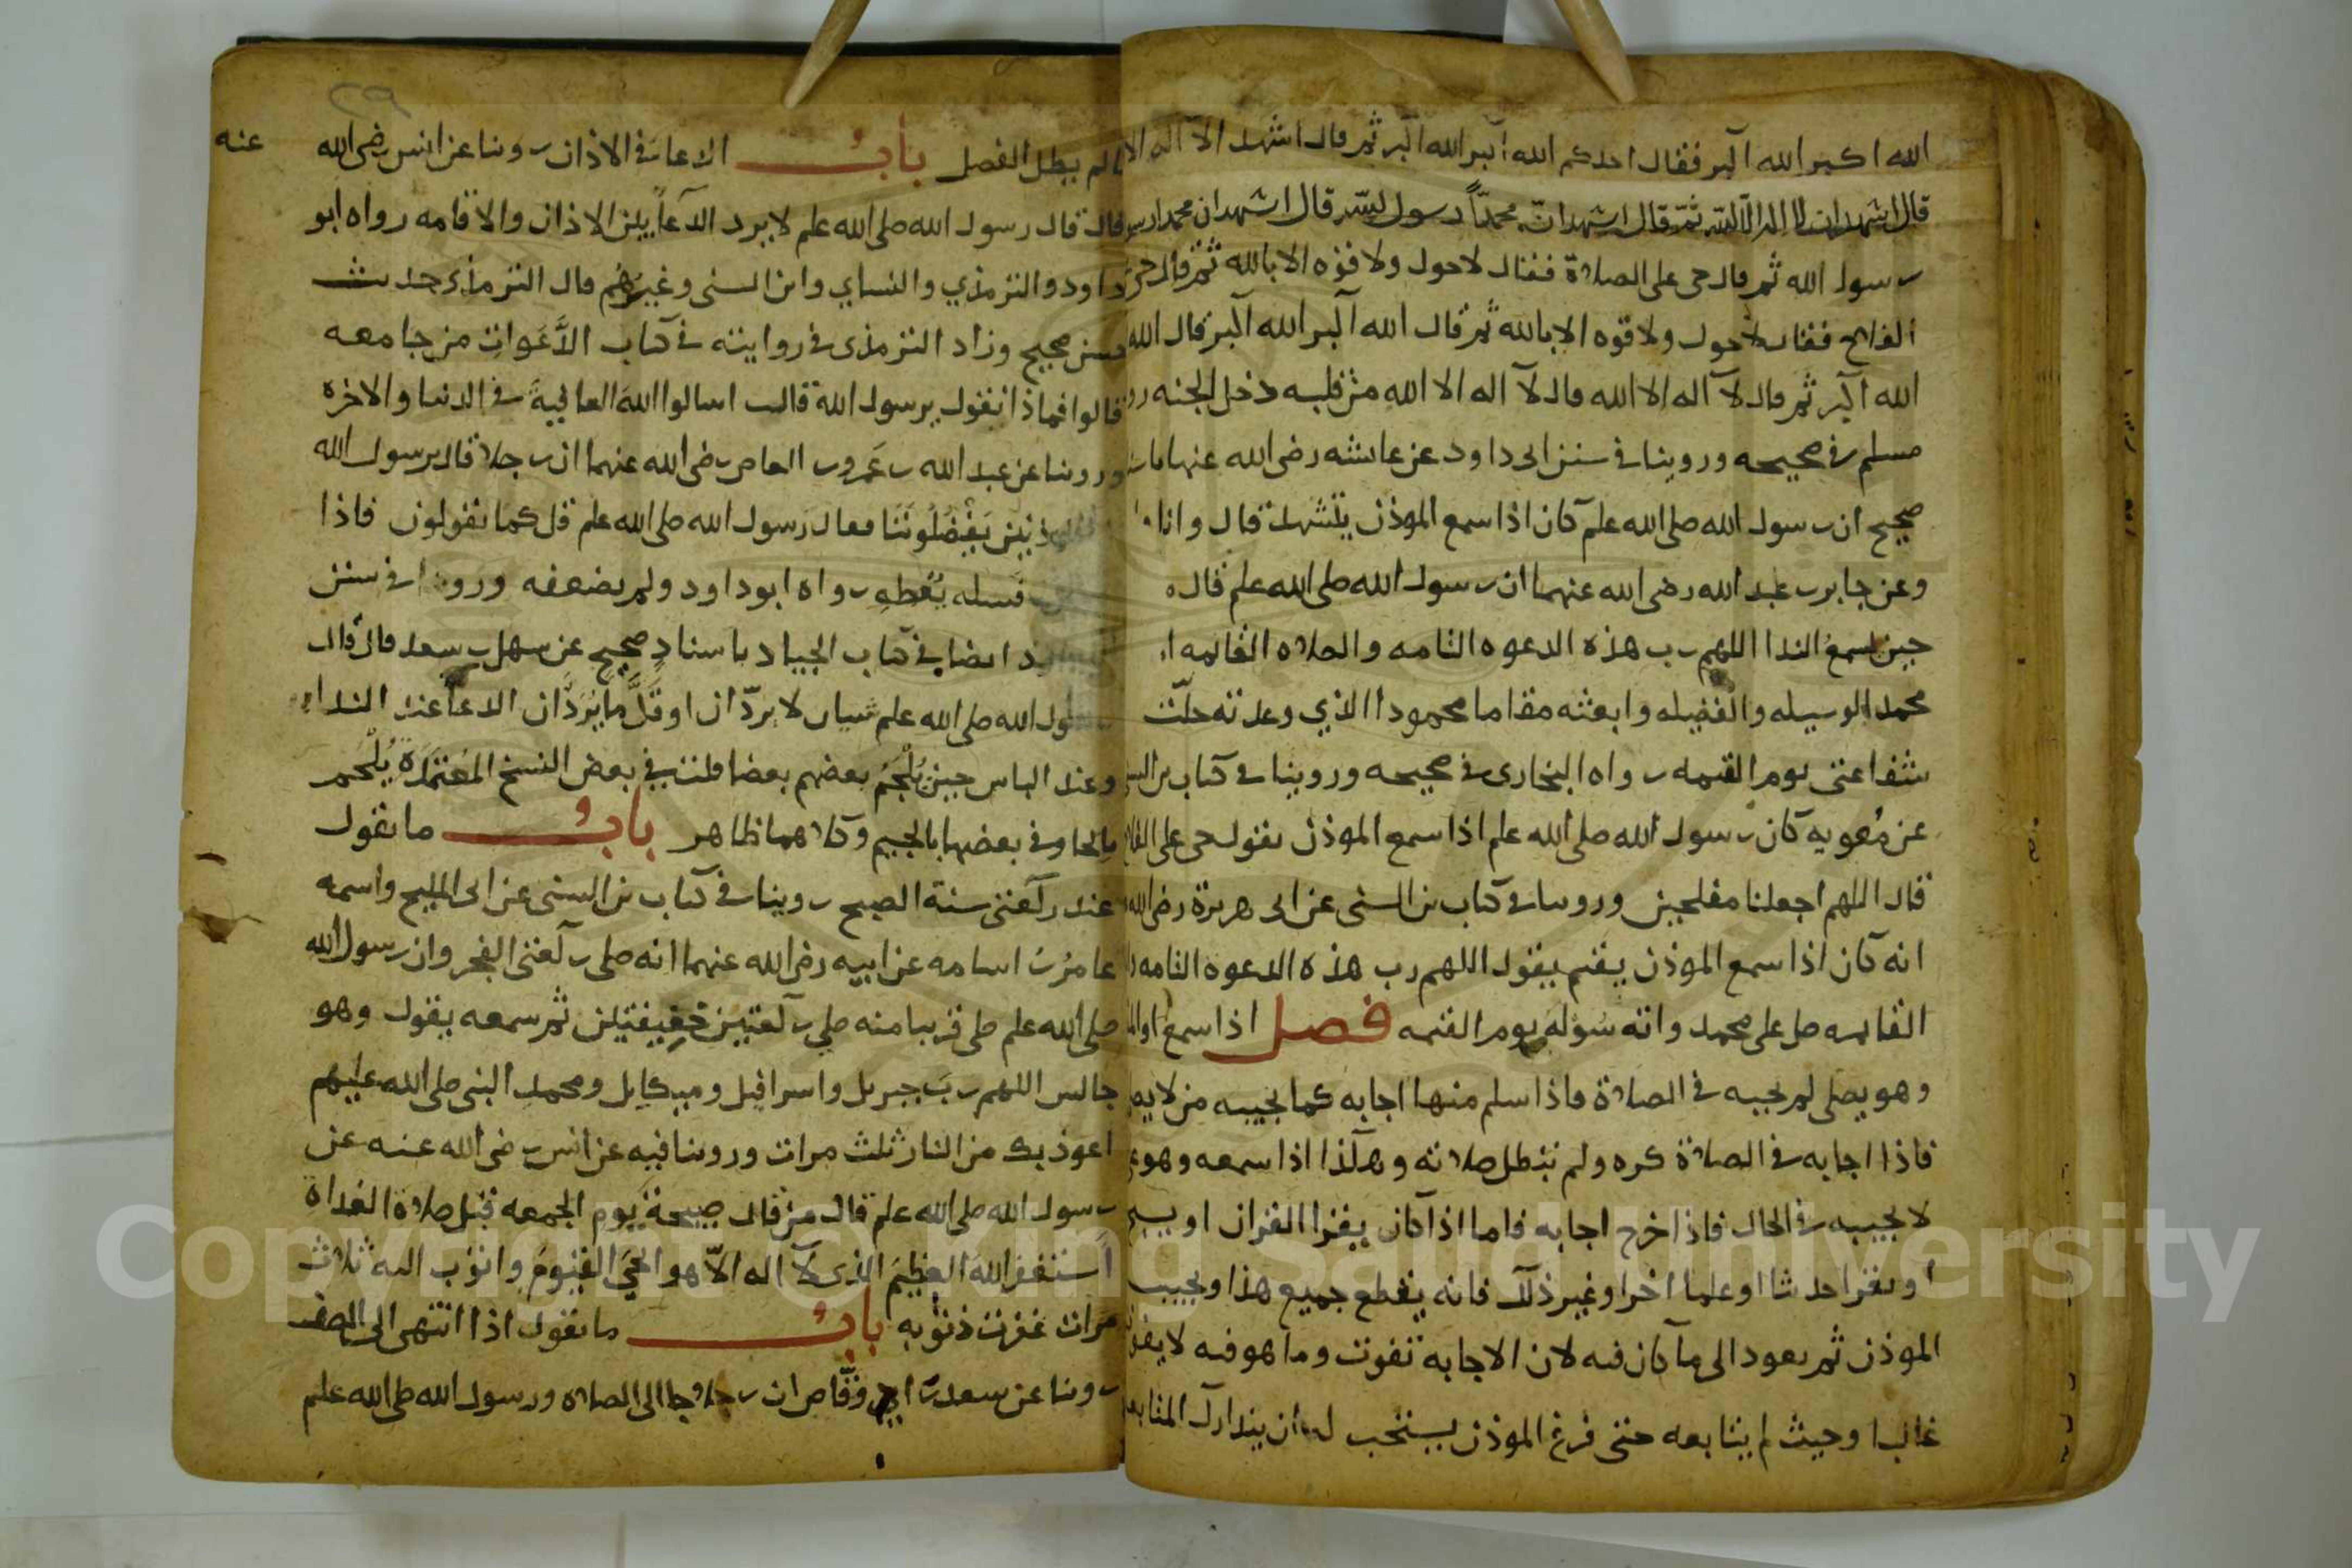 الله اكبر الله اكبر فقال احدكم الله اكبر الله اكبر ثم قال اشهد الا اله الا
قال اشهد ان لا اله الا الله ثم قال اشهد ان محمدا رسول الله قال اشهد ان محمدا
رسول الله ثم قال حى على الصلاة فقال لاحول ولا قوه الا بالله ثم قال حى
الفلاح فقال لاحول ولا قوه الا بالله ثم قال الله اكبر الله اكبر قال الله
الله اكبر ثم قال لا اله الا الله قال لا اله الا الله من قلبه دخل الجنه
مسلم في صحيحه وروينا في سنن ابى داود عن عائشه رضى الله عنها
صحيح ان رسول الله صلى الله علم كان اذا سمع الموذن يتشهد قال وانا
وعن جابر بن عبد الله رضى الله عنهما ان رسول الله صلى الله علم قال
حين يسمع الندا اللهم رب هذه الدعوه التامه والصلاه القايمه
محمد الوسيله والفضيله وابعثه مقاما محمودا الذي وعدته حلّت
شفاعتى يوم القيمه رواه البخارى في صحيحه وروينا في كتاب بن
عن معويه كان رسول الله صلى الله علم اذا سمع الموذن يقول حى على
قال اللهم اجعلنا مفلحين وروينا في كتاب بن السنى عن ابى هريرة رضى الله
انه كان اذا سمع الموذن يقيم يقول اللهم رب هذه الدعوه التامه
القايمه صل على محمد واته سؤله يوم القيمه فصل اذا سمع
وهو يصلى لم يجبه في الصلاة فاذا سلم منها اجابه كما يجيبه من
فاذا اجابه في الصلاة كره ولم تبطل صلاته وهكذا اذا سمعه وهو
لا يجيبه في الحال فاذا خرج اجابه فاما اذا كان يقرا القران او يسبح
او يقرا حديثا او علما اخر او غير ذلك فانه يقطع جميع هذا ويجيب
الموذن ثم يعود الى ما كان فيه لان الاجابه تفوت وما هو فيه لا
غالبا وحيث لم يتابعه حتى فرغ الموذن يستحب له ان يتدارك
٢٩
لم يطل الفصل باب الدعا في الاذان روينا عن انس رضى الله عنه
قال قال رسول الله صلى الله علم لا يرد الدعا بين الاذان والاقامه رواه ابو
داود والترمذي والنساي وابن السنى وغيرهم قال الترمذى حديث
حسن صحيح وزاد الترمذى في روايته في كتاب الدعوات من جامعه
قالوا فماذا نقول يرسول الله قال اسالوا الله العافية في الدنيا والاخره
وروينا عن عبد الله بن عمرو بن العاص رضى الله عنهما ان رجلا قال يرسول الله
يفضلوننا فقال رسول الله صلى الله علم قل كما يقولون فاذا
فسله تعطه رواه ابو داود ولم يضعفه وروينا في سنن
ايضا في كتاب الجهاد باسناد صحيح عن سهل بن سعد قال قال
رسول الله صلى الله علم ثنتان لا تردّان او قلّ ما تردّان الدعا عند الندا
وعند الباس حين يلجم بعضهم بعضا قلت في بعض النسخ المعتمدة يلحم
بالحا وفي بعضها بالجيم وكلاهما ظاهر باب ما يقول
عند ركعتى سنة الصبح روينا في كتاب بن السنى عن ابى المليح واسمه
عامر بن اسامه عن ابيه رضى الله عنهما انه صلى ركعتى الفجر وان رسول الله
صلى الله علم صلى قريبا منه صلى ركعتين خفيفتين ثم سمعه يقول وهو
جالس اللهم رب جبريل واسرافيل وميكايل ومحمد النبى صلى الله عليهم
اعوذ بك من النار ثلث مرات وروينا فيه عن انس رضى الله عنه عن
رسول الله صلى الله علم قال من قال صبيحة يوم الجمعه قبل صلاة الغداة
استغفر الله العظيم الذى لا اله الّا هو الحي القيوم واتوب اليه ثلاث
مرات غفرت ذنوبه باب ما يقول اذا انتهى الى الصف
روينا عن سعد بن ابي وقاص ان رجلا جا الى الصلاه ورسول الله صلى الله علم